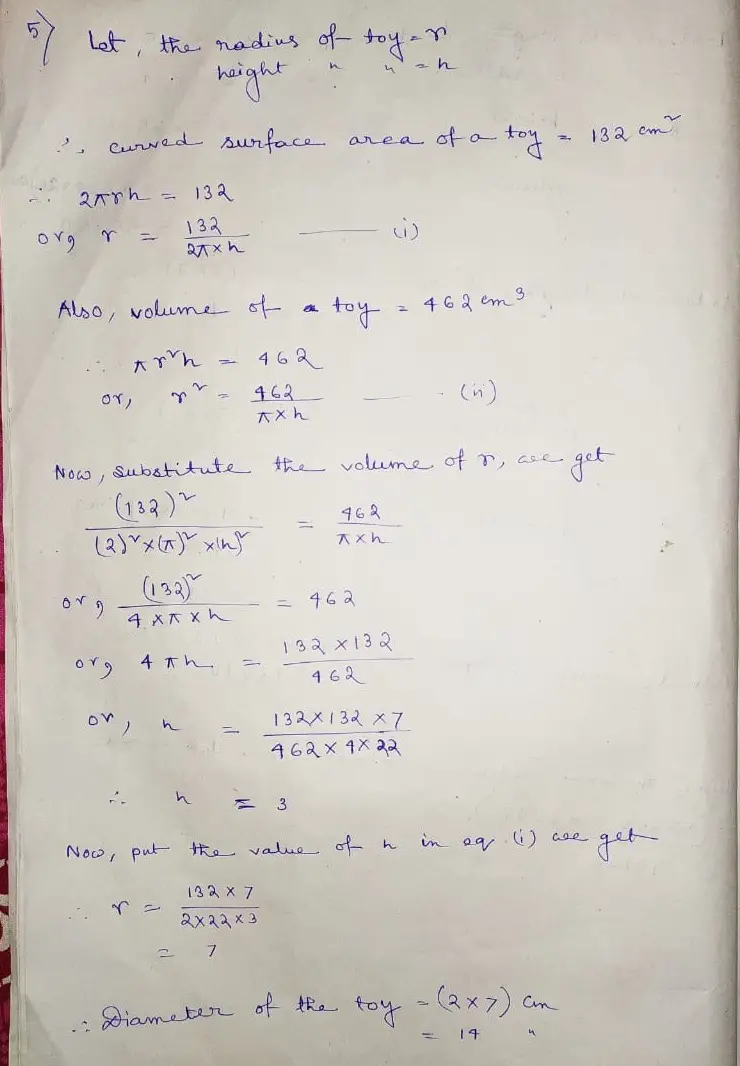 5) Let, the radius of toy = r
height " " = h
∴ curved surface area of a toy = 132 cm²
∴ 2πrh = 132
or, r = 132 / 2π×h —— (i)
Also, volume of a toy = 462 cm³
∴ πr²h = 462
or, r² = 462 / π×h —— (ii)
Now, substitute the volume of r, we get
(132)² / (2)²×(π)²×(h)² = 462 / π×h
or, (132)² / 4×π×h = 462
or, 4πh = 132×132 / 462
or, h = 132×132×7 / 462×4×22
∴ h = 3
Now, put the value of h in eq (i) we get
∴ r = 132×7 / 2×22×3
= 7
∴ Diameter of the toy = (2×7) cm
= 14 "